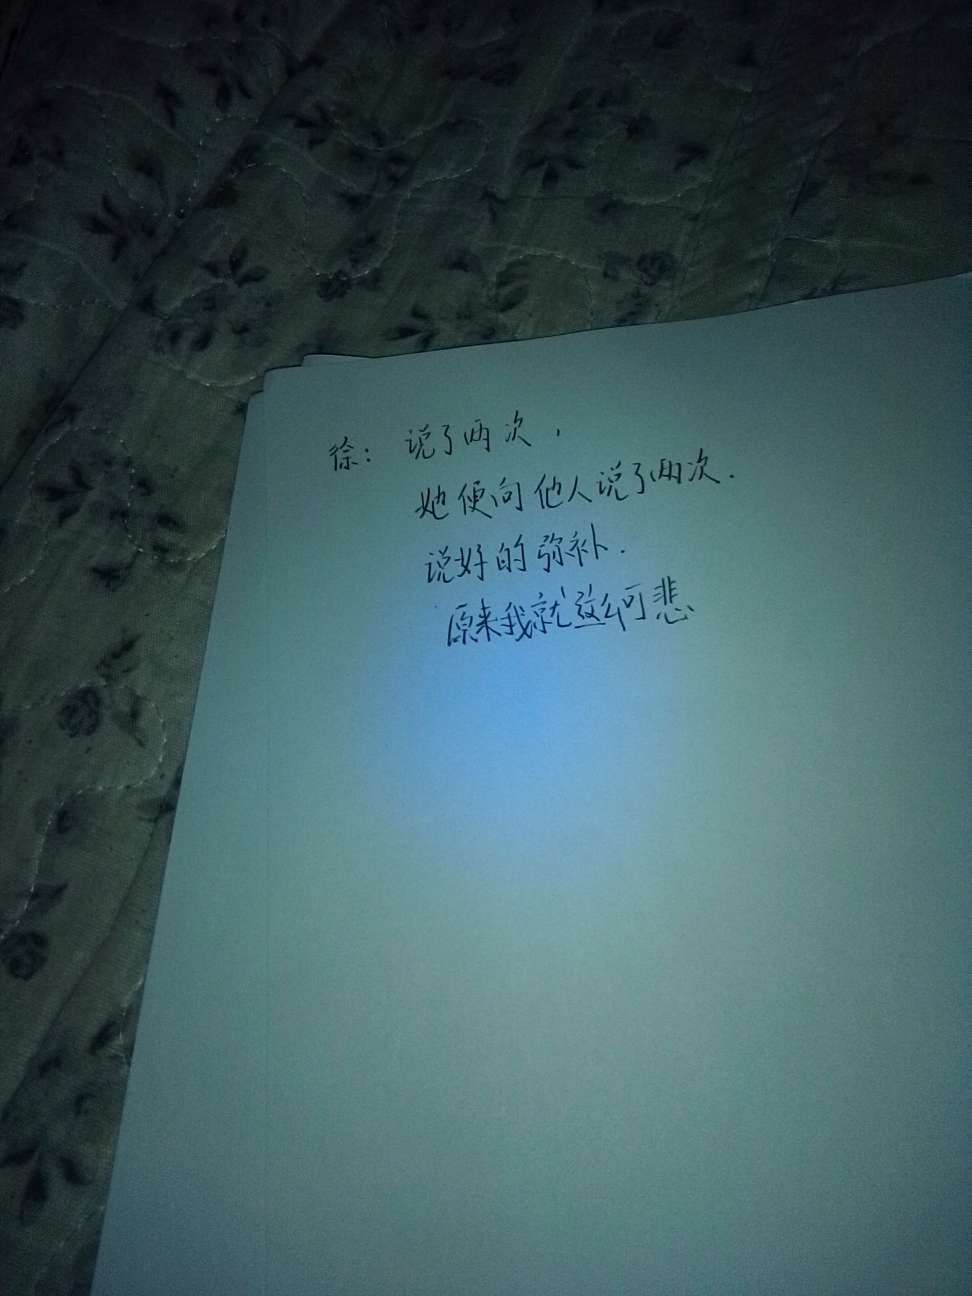 徐：说了两次，
她便向他人说了两次.
说好的弥补.
原来我就这么可悲